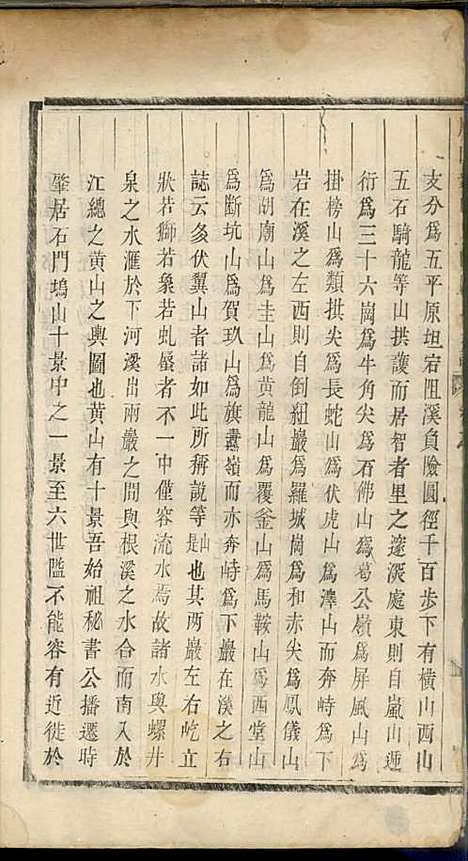 支分爲五平原坦宕阻溪負險圓徑千百步下有橫山西山
五石騎龍等山拱護而居智者里之邃深處東則自嵐山迤
衍爲三十六崗爲牛角尖爲石佛山爲葛公嶺爲屏風山爲
掛榜山爲類拱尖爲長蛇山爲伏虎山爲澤山而奔峙爲下
岩在溪之左西則自倒紐巖爲羅城崗爲和赤尖爲鳳儀山
爲胡廟山爲圭山爲黄龍山爲覆釜山爲馬鞍山爲西堂山
爲斷坑山爲賀玖山爲旗纛嶺而亦奔峙爲下巖在溪之右
誌云多伏翼山者諸如此所稱說等山是也其两巖左右屹立
狀若獅若象若虬蜃者不一中僅容流水焉故諸水與螺井
泉之水滙於下河溪出兩巖之間與根溪之水合而南入於
江總之黄山之輿圖也黄山有十景吾始祖秘書公播遷時
肇居石門塢山十景中之一景至六世隘不能容有近徙於